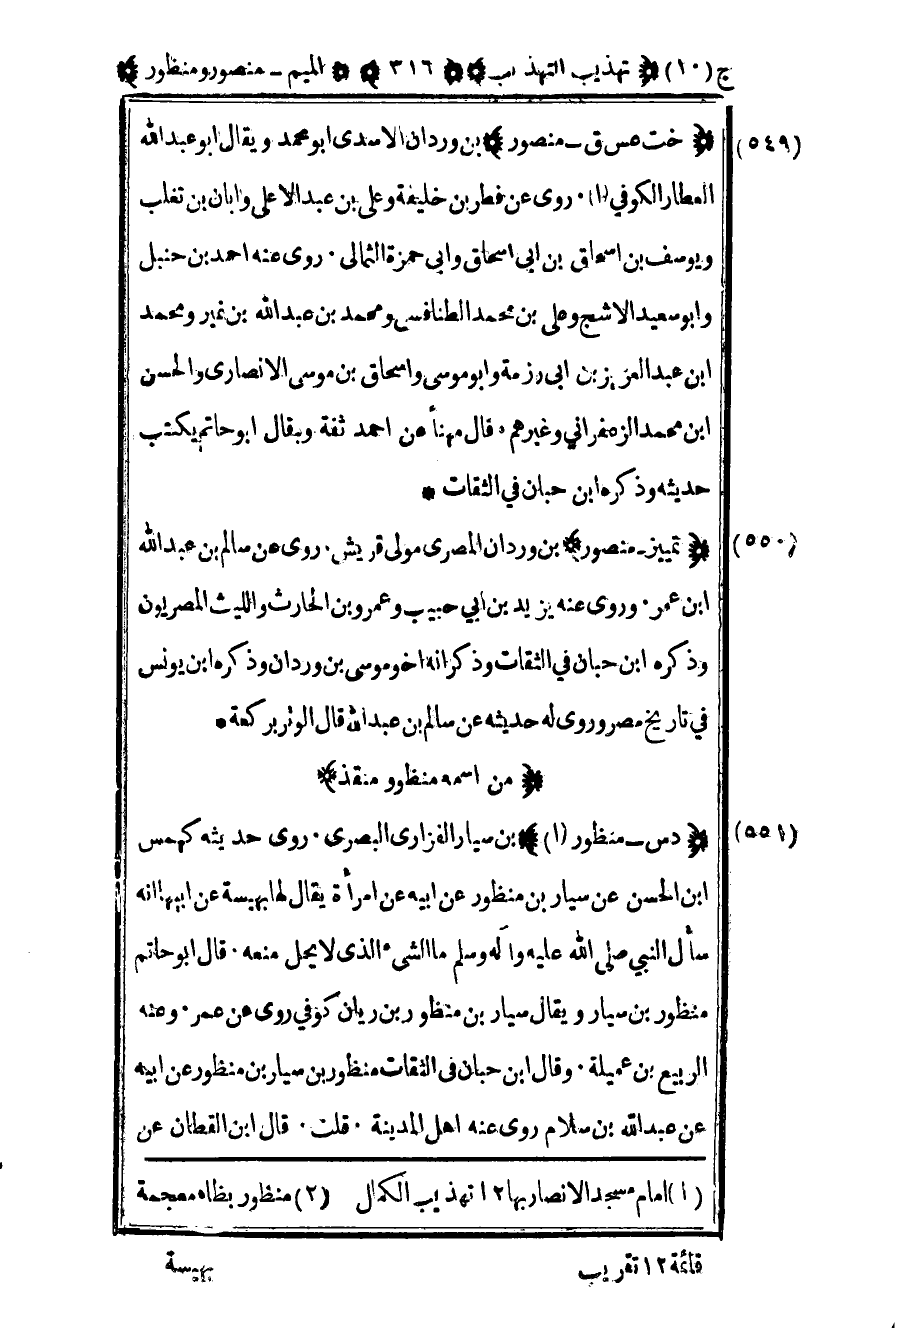 ج (١٠) ﴿ تهذيب التهذيب ﴾ ﴿ ٣١٦ ﴾ ﴿ الميم ــ منصور و منظور ﴾
(٥٤٩) ﴿ خت عس ق ــ منصور ﴾ بن وردان الاسدى ابو محمد ويقال ابو عبدالله
العطار الكوفي (١)٠ روى عن فطر بن خليفة وعلى بن عبدالاعلى وابان بن تغلب
ويوسف بن اسحاق بن ابى اسحاق وابى حمزة الثمالى ٠ روى عنه احمد بن حنبل
وابو سعيد الاشج وعلى بن محمد الطنافسى ومحمد بن عبدالله بن نمير ومحمد
ابن عبد العزيز بن ابى رزمة وابو موسى واسحاق بن موسى الانصارى والحسن
ابن محمد الزعفراني وغيرهم ٠ قال مهنأ عن احمد ثقة وبقال ابو حاتم يكتب
حديثه وذكره ابن حبان في الثقات *
(٥٥٠) ﴿ تمييز ــ منصور ﴾ بن وردان المصرى مولى قريش ٠ روى عن سالم بن عبدالله
ابن عمر ٠ وروى عنه يزيد بن ابي حبيب وعمرو بن الحارث والليث المصريون
وذكره ابن حبان في الثقات وذكر انه اخو موسى بن وردان وذكره ابن يونس
في تاريخ مصر وروى له حديثه عن سالم بن عبدالله قال الوتر بركعة *
﴿ من اسمه منظور و منقذ ﴾
(٥٥١) ﴿ دس ــ منظور (١) ﴾ بن سيار الفزارى البصرى ٠ روى حديثه كهمس
ابن الحسن عن سيار بن منظور عن ابيه عن امرأة يقال لها بهيسة عن ابيها انه
سأل النبي صلى الله عليه وآله وسلم ما الشىء الذى لا يحل منعه ٠ قال ابو حاتم
منظور بن سيار ويقال سيار بن منظور بن ريان كوفي روى عن عمر ٠ وعنه
الربيع بن عميلة ٠ وقال ابن حبان فى الثقات منظور بن سيار بن منظور عن ابيه
عن عبدالله بن سلام روى عنه اهل المدينة ٠ قلت ٠ قال ابن القطان عن
(١) امام مسجد الانصار بها ١٢ تهذيب الكمال (٢) منظور بظاء معجمة
قائمة ١٢ تقريب بهيسة